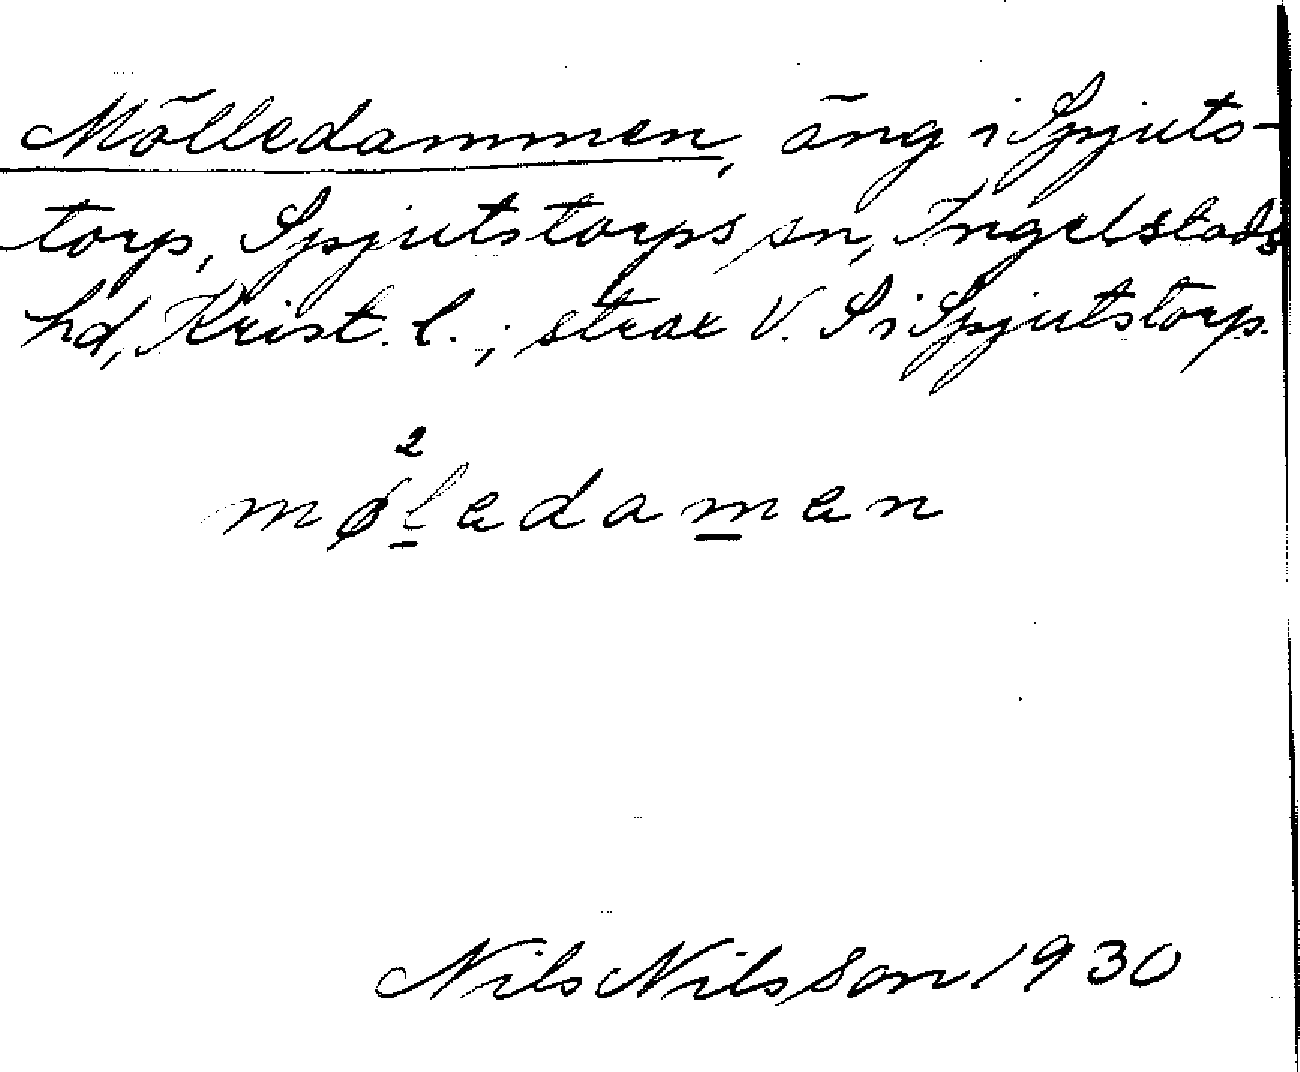 Mölledammen, äng i Spjuts-
torp, Spjutstorps sn, Ingelstads
hd, Krist. l.; strax V. S i Spjutstorp.
2
møledamen
Nils Nilsson 1930